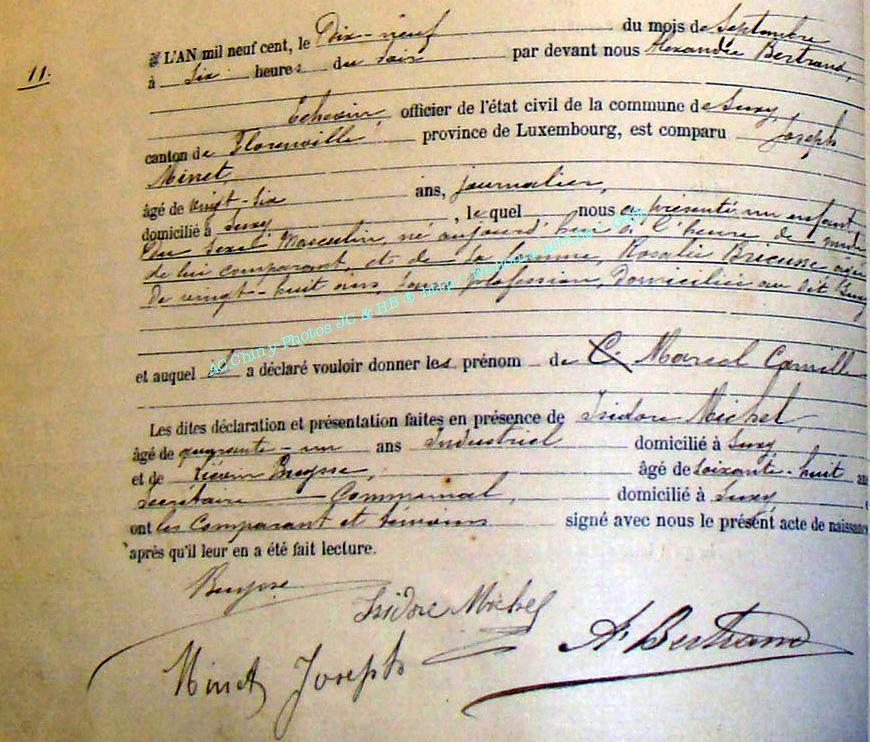 11.
L'AN mil neuf cent, le Dix-neuf du mois de Septembre
à six heures du soir par devant nous Alexandre Bertrand,
Echevin, officier de l'état civil de la commune de Suxy,
canton de Florenville province de Luxembourg, est comparu Joseph
Minet
âgé de vingt-six ans, journalier,
domicilié à Suxy, lequel nous a présenté un enfant
du sexe Masculin, né aujourd'hui à l'heure de midi
de lui comparant, et de sa femme, Rosalie âgée
de vingt-huit ans, sans profession, domiciliée au dit Suxy
et auquel il a déclaré vouloir donner les prénom de C. Marcel Camille
Les dites déclaration et présentation faites en présence de Isidore Michel,
âgé de quarante-un ans Industriel domicilié à Suxy
et de Buysse, âgé de soixante-huit ans
Secrétaire Communal, domicilié à Suxy,
ont les Comparant et témoins signé avec nous le présent acte de naissance
après qu'il leur en a été fait lecture.
Buysse
Isidore Michel
Minet Joseph
A Bertrand
AC Chiny Photos JC & HB © http://